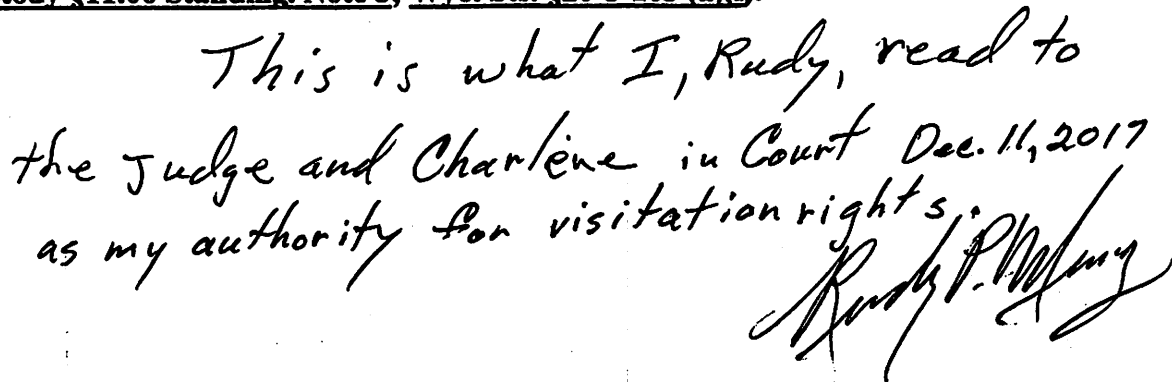 This is what I, Rudy, read to
the Judge and Charlene in Court Dec. 11, 2017
as my authority for visitation rights.
Rudy P.